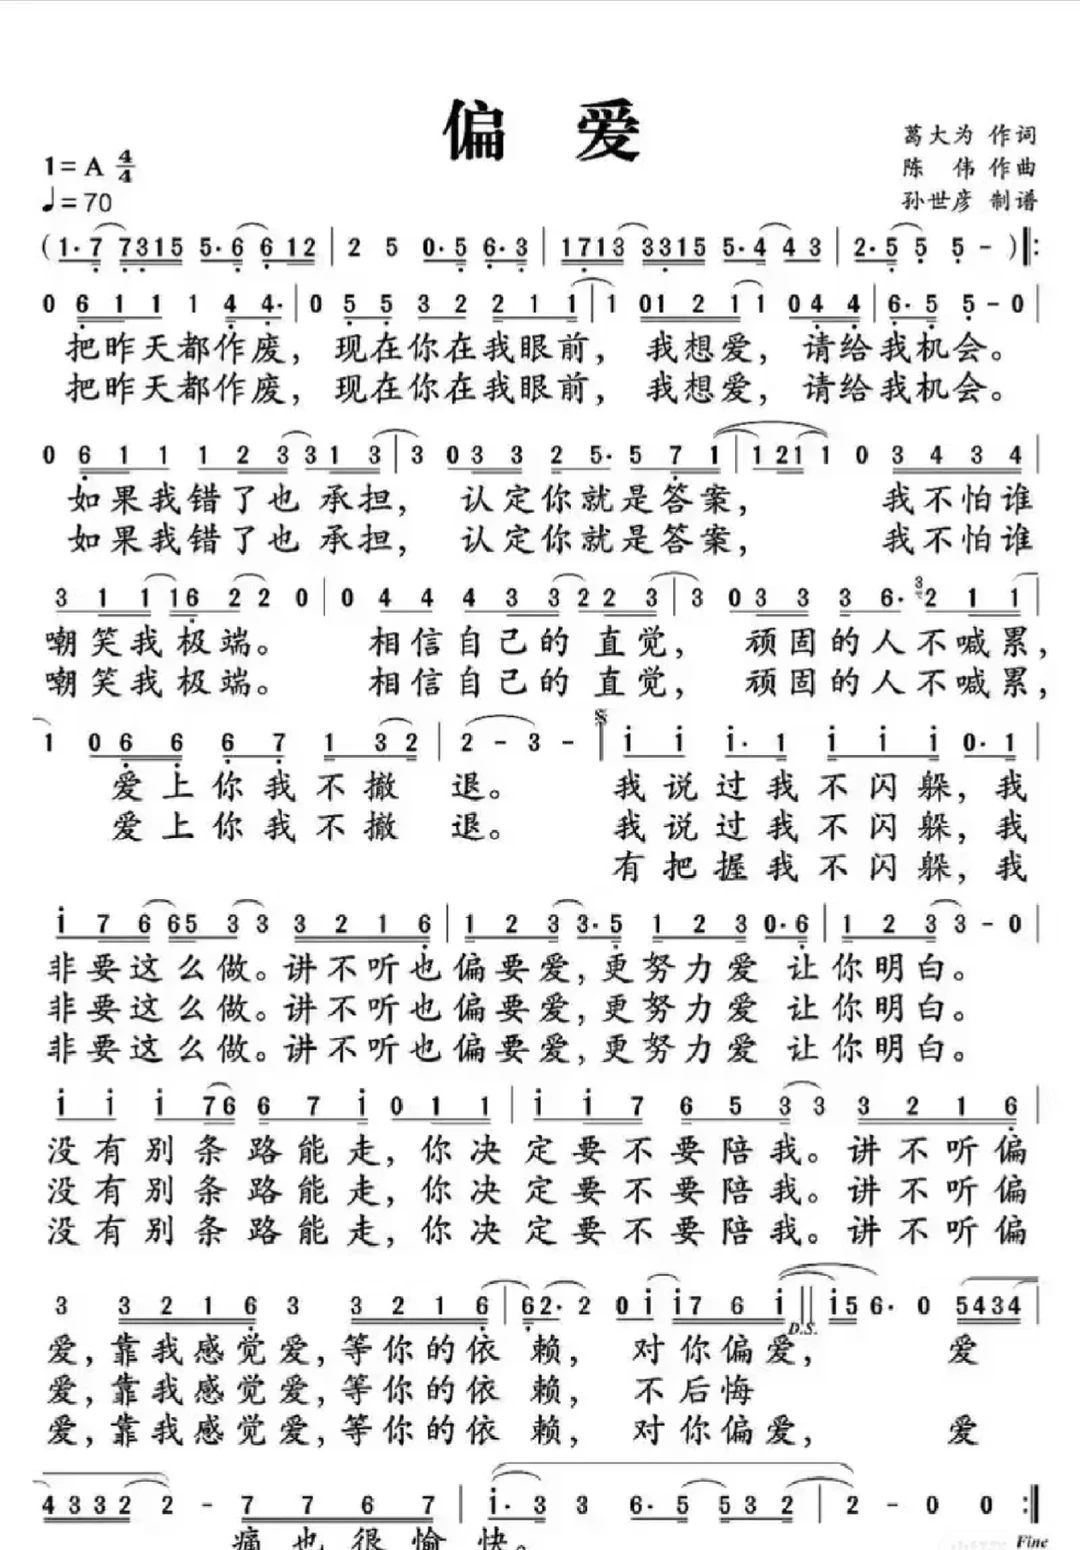 偏 爱
葛大为 作词
1=A 4/4
陈 伟 作曲
♩=70
孙世彦 制谱
(1·7 7315 5·6 612 | 2 5 0·5 6·3 | 1713 3315 5·4 43 | 2·5 5 5 - )‖:
0 6 1 1 1 4 4· | 0 5 5 3 2 2 1 1 | 1 01 2 1 1 0 4 4 | 6·5 5 - 0 |
把昨天都作废，现在你在我眼前，我想爱，请给我机会。
把昨天都作废，现在你在我眼前，我想爱，请给我机会。
0 6 1 1 1 2 3 3 1 3 | 3 0 3 3 2 5· 5 7 1 | 1 2 1 1 0 3 4 3 4 |
如果我错了也承担，认定你就是答案，我不怕谁
如果我错了也承担，认定你就是答案，我不怕谁
3 1 1 1 6 2 2 0 | 0 4 4 4 3 3 2 2 3 | 3 0 3 3 3 6· 3 2 1 1 |
嘲笑我极端。相信自己的直觉，顽固的人不喊累，
嘲笑我极端。相信自己的直觉，顽固的人不喊累，
1 0 6 6 6 7 1 3 2 | 2 - 3 - 1 1 1· 1 1 1 1 0·1 |
爱上你我不撤退。我说过我不闪躲，我
爱上你我不撤退。我说过我不闪躲，我
有把握我不闪躲，我
1 7 6 6 5 3 3 3 2 1 6 | 1 2 3 3·5 1 2 3 0·6 | 1 2 3 3 - 0 |
非要这么做。讲不听也偏要爱，更努力爱 让你明白。
非要这么做。讲不听也偏要爱，更努力爱 让你明白。
非要这么做。讲不听也偏要爱，更努力爱 让你明白。
1 1 1 7 6 6 7 1 0 1 1 | 1 1 7 6 5 3 3 3 2 1 6 |
没有别条路能走，你决定要不要陪我。讲不听偏
没有别条路能走，你决定要不要陪我。讲不听偏
没有别条路能走，你决定要不要陪我。讲不听偏
3 3 2 1 6 3 3 2 1 6 | 6 2· 2 0 1 1 7 6 1 ‖ 1 5 6· 0 5 4 3 4 |
D.S.
爱，靠我感觉爱，等你的依赖，对你偏爱，爱
爱，靠我感觉爱，等你的依赖，不后悔
爱，靠我感觉爱，等你的依赖，对你偏爱，爱
4 3 3 2 2 - 7 7 6 7 | 1·3 3 6·5 5 3 2 | 2 - 0 0 :‖
痛也很愉快。
Fine